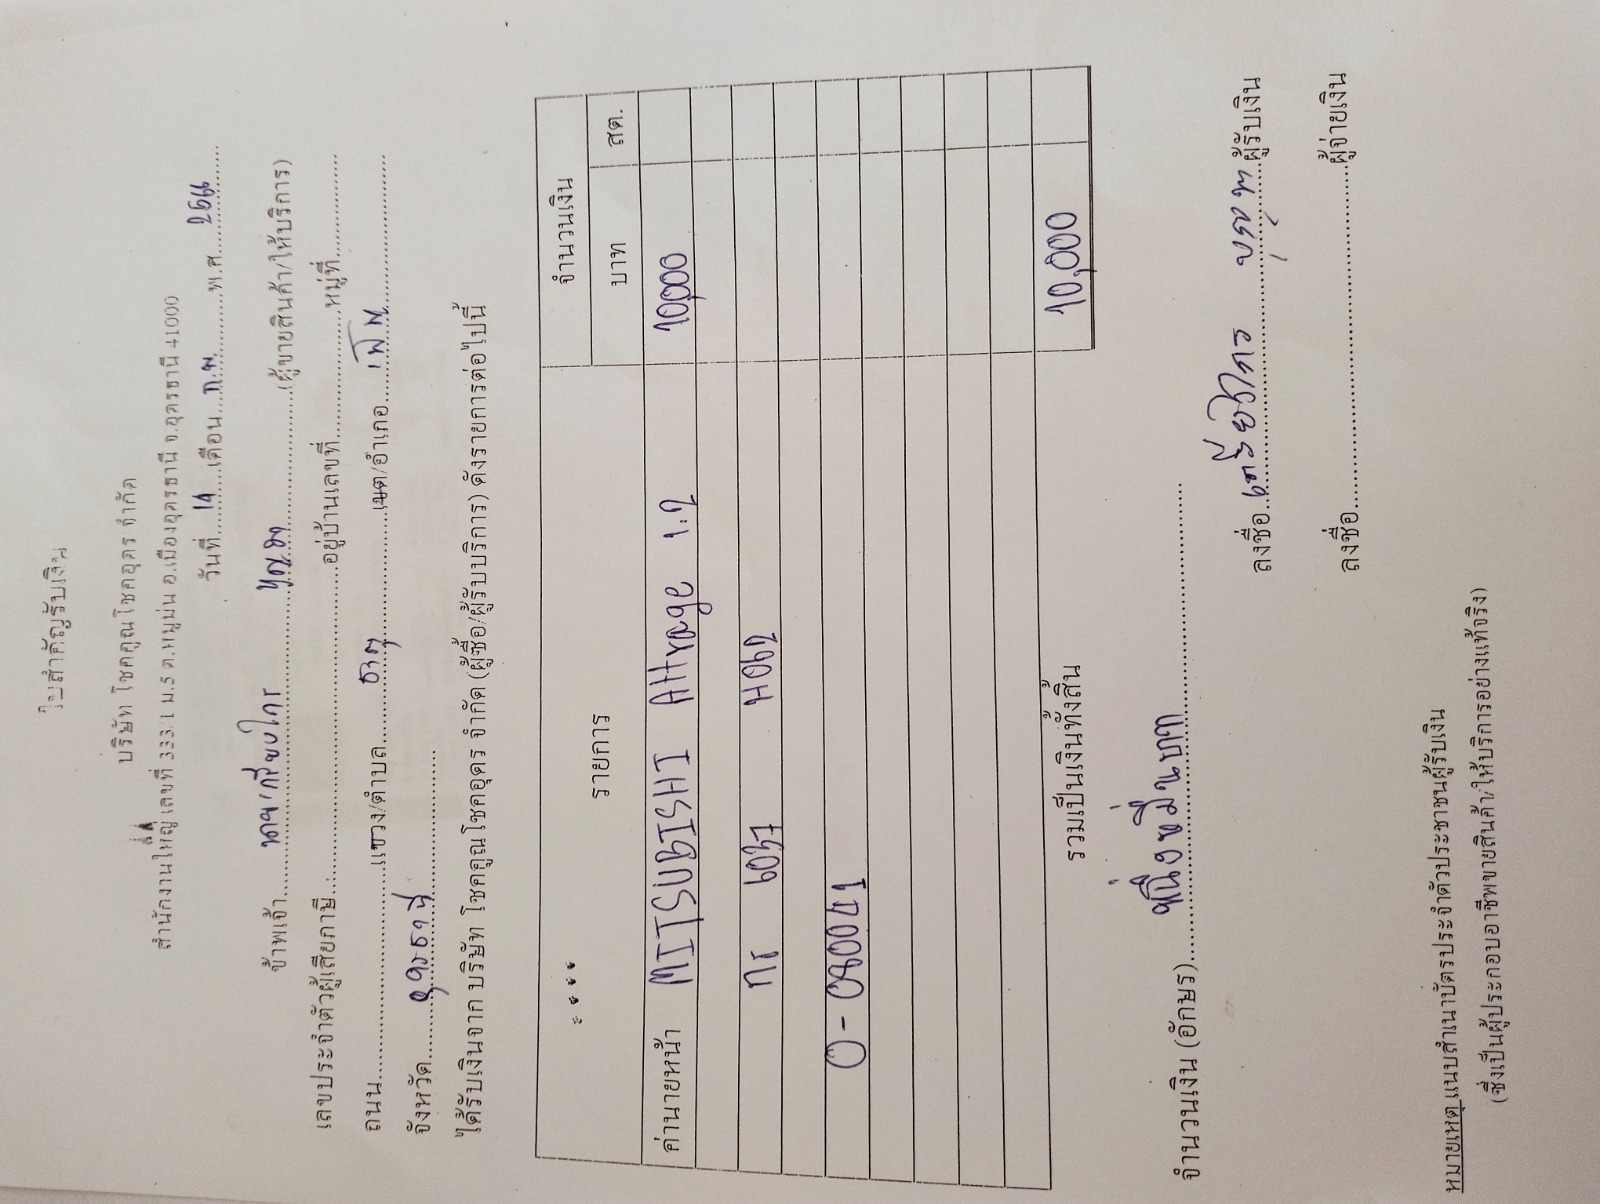 ใบสำคัญรับเงิน
บริษัท โชคคูณโชคอุดร จำกัด
สำนักงานใหญ่ เลขที่ 333/1 ม.5 ต.หมูม่น อ.เมืองอุดรธานี จ.อุดรธานี 41000
วันที่ 14 เดือน ก.พ. พ.ศ. 2566
ข้าพเจ้า นายเกรียงไกร (ผู้ขายสินค้า/ให้บริการ)
เลขประจำตัวผู้เสียภาษี : อยู่บ้านเลขที่ หมู่ที่
ถนน แขวง/ตำบล ธาตุ เขต/อำเภอ เพ็ญ
จังหวัด อุดรธานี
ได้รับเงินจาก บริษัท โชคคูณโชคอุดร จำกัด (ผู้ซื้อ/ผู้รับบริการ) ดังรายการต่อไปนี้
รายการ จำนวนเงิน
บาท สต.
ค่านายหน้า MITSUBISHI Attrage 1.2 10,000
กร 6037 H062
0-080041
รวมเป็นเงินทั้งสิ้น 10,000
จำนวนเงิน (อักษร) หนึ่งหมื่นบาท
ลงชื่อ เกรียงไกร ผู้รับเงิน
ลงชื่อ ผู้จ่ายเงิน
หมายเหตุ แนบสำเนาบัตรประจำตัวประชาชนผู้รับเงิน
(ซึ่งเป็นผู้ประกอบอาชีพขายสินค้า/ให้บริการอย่างแท้จริง)